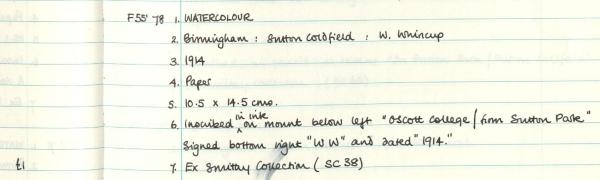 F55' 78 1. WATERCOLOUR
2. Birmingham : Sutton Coldfield : W. Whincup
3. 1914
4. Paper
5. 10.5 x 14.5 cms.
6. Inscribed in ink on mount below left "Oscott College / from Sutton Park"
Signed bottom right "WW" and dated "1914."
7. Ex Smittay Collection (SC38)